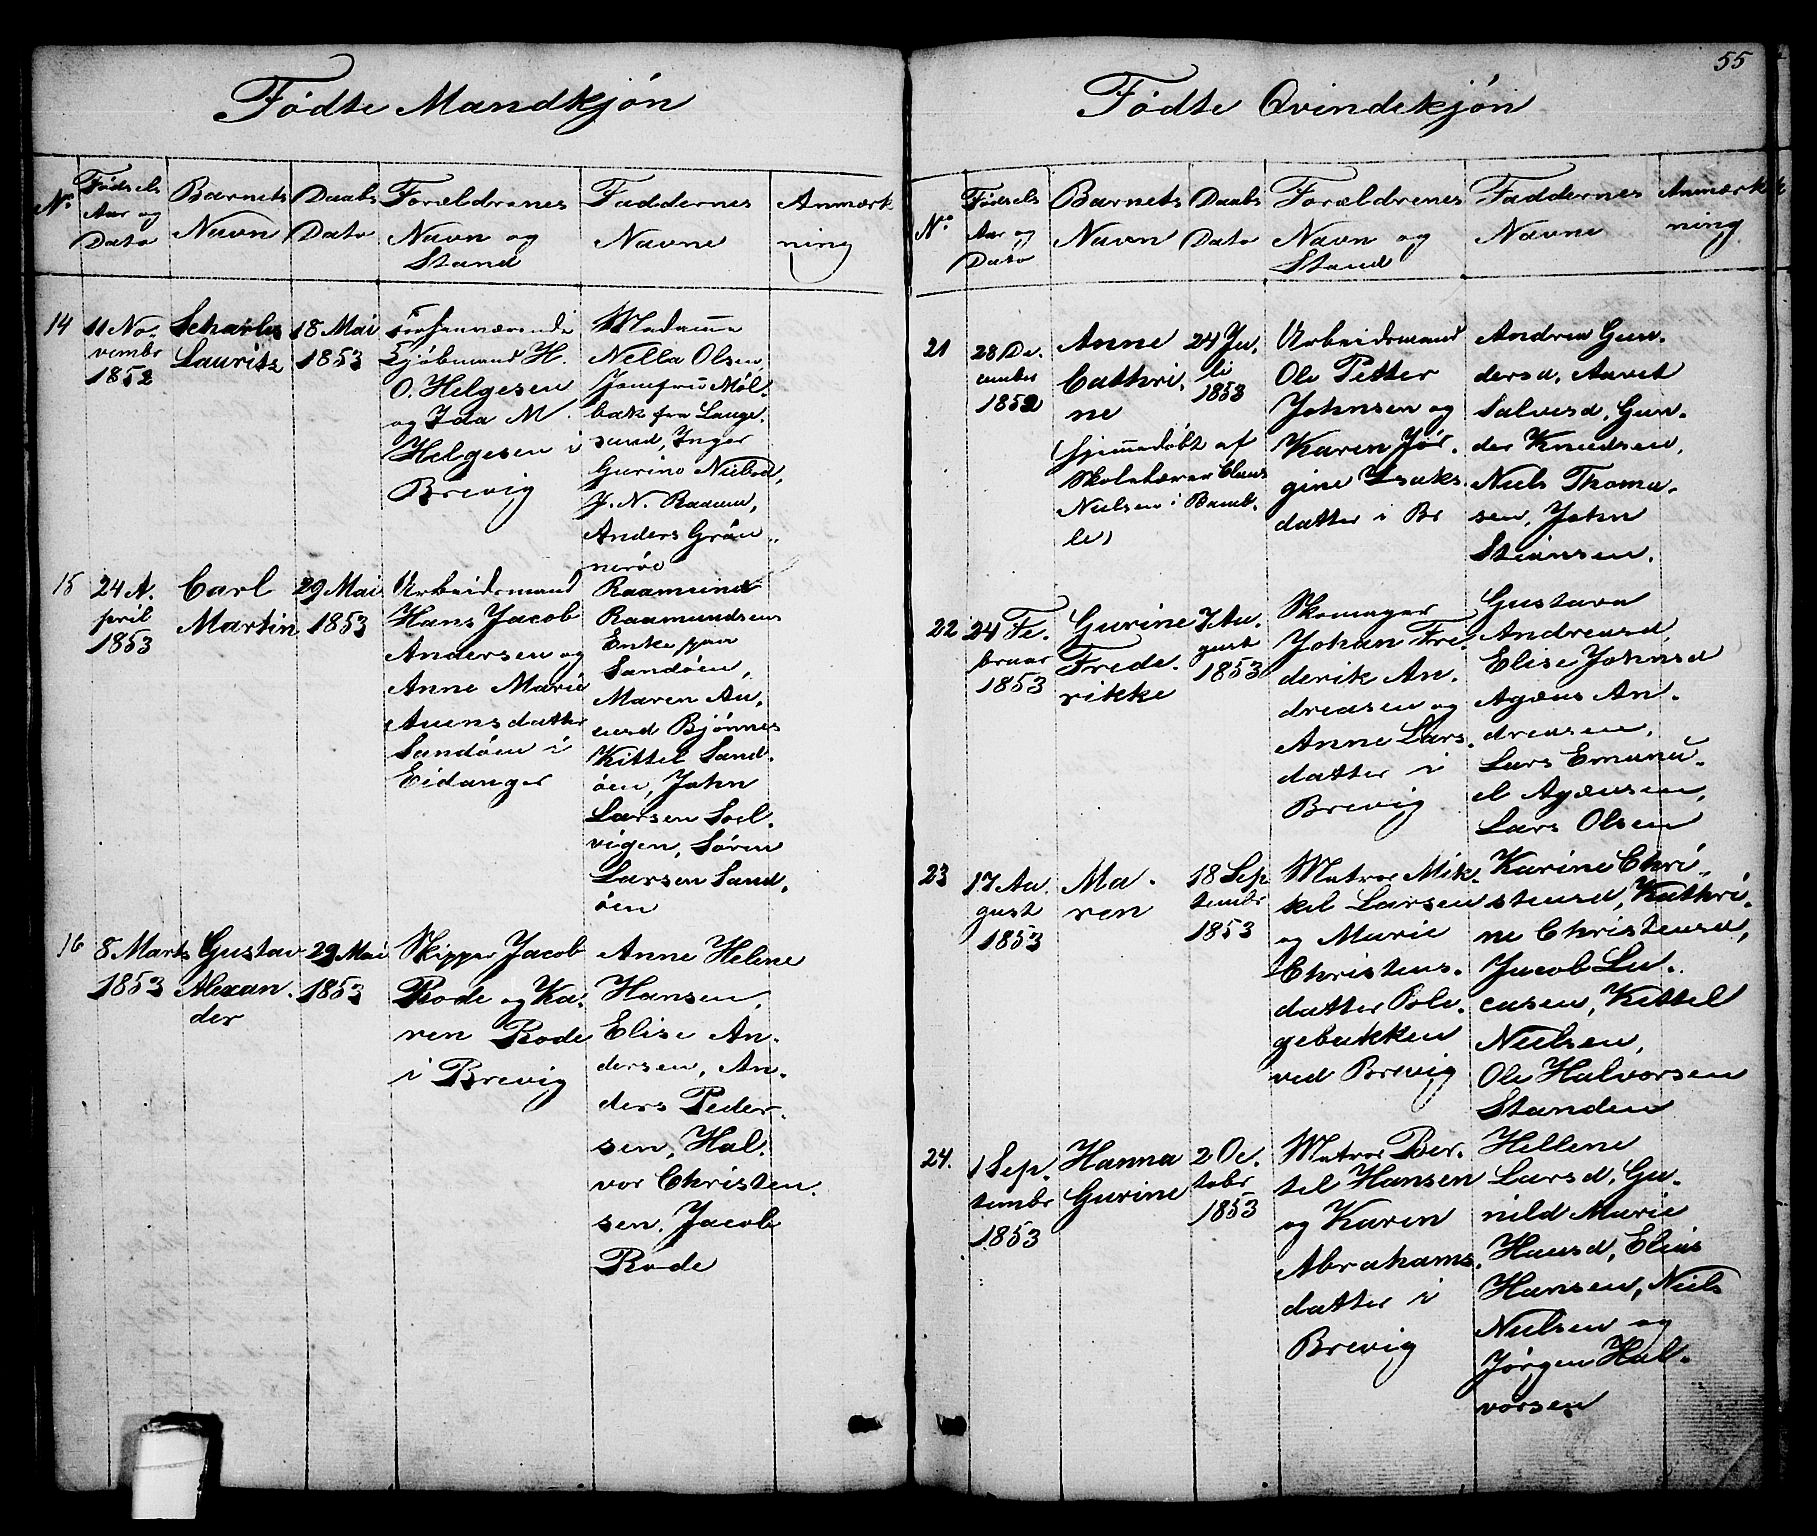 Fødte Mandkjøn
No
Fødsels
Aar og
Dato
Barnets
Navn
Daabs
Dato
Forældrenes
Navn og
Stand
Faddernes
Navne
Anmærk
ning
14
11 No-
vembr
1852
Scharles
Lauritz
18 Mai
1853
Forhenværende
H.
O. Helgesen
og Ida M
Helgesen i
Brevig
Madame
Nella Olsen,
Jomfru Møl-
bak fra Lange-
sund, Inger
Gurine Nielsd,
J. N. Raaum,
Anders Grøn-
nerøe
15
24 A-
pril
1853
Carl
Martin
29 Mai
1853
Arbeidsmand
Hans Jacob
Andersen og
Anne Marie
Auensdatter
Sandøen i
Eidanger
Raamund
Raamundsens
Enke paa
Sandøen,
Maren An-
ensd Bjønnes
Kittel Sand-
øen, John
Larsen Soel-
vigen, Søren
Larsen Sand-
øen
16
8 Marts
1853
Gustav
Alexan-
der
29 Mai
1853
Skipper Jacob
Rode og Ka-
ren Rode
i Brevig
Anne Helene
Hansen,
Elise An-
dersen, An-
ders Peder-
sen, Hal-
vor Christen-
sen, Jacob
Rode
55
Fødte Qvindekjøn
No
Fødsels
Aar og
Dato
Barnets
Navn
Daabs
Dato
Forældrenes
Navn og
Stand
Faddernes
Navne
Anmærk
ning
21
28 De-
cember
1852
Anne
Cathri-
ne
(hjemmedøbt af
Skolelærer Claus
Nielsen i Bamb-
le)
24 Ju-
li
1853
Arbeidsmand
Ole Petter
Johnsen og
Karen Jør-
gine Isaks-
datter i Br
Andrea Gun-
dersd, Aavet
Salvesd, Gun-
der Knudsen,
Niels Thoma-
sen, John
Stiansen.
22
24 Fe-
bruar
1853
Gurine
Frede-
rikke
7 Au-
gust
1853
Skomager
Johan Fre-
derik An-
dreasen og
Anne Lars-
datter i
Brevig
Gustava
Andreasd,
Elise Johnsd
Agæus An-
dreasen,
Lars Emanu-
el Agæusen,
Lars Olsen
23
17 Au-
gust
1853
Ma-
ren
18 Sep
tembr
1853
Matros Mik-
kel Larsen
og Marie
Christens-
datter Bole-
gebakken
ved Brevig
Karine Chri-
stensd, Kathri-
ne Christensd,
Jacob Lu-
casen, Kittel
Nielsen,
Ole Halvorsen
Standen
24.
1 Sep-
tembr
1853
Hanna
Gurine
2 Oc-
tobr
1853
Matros Ber-
tel Hansen
og Karen
Abrahams-
datter i
Brevig
Hellene
Larsd, Gu-
nild Marie
Hansd, Elias
Hansen, Niels
Nielsen og
Jørgen Hal-
vorsen